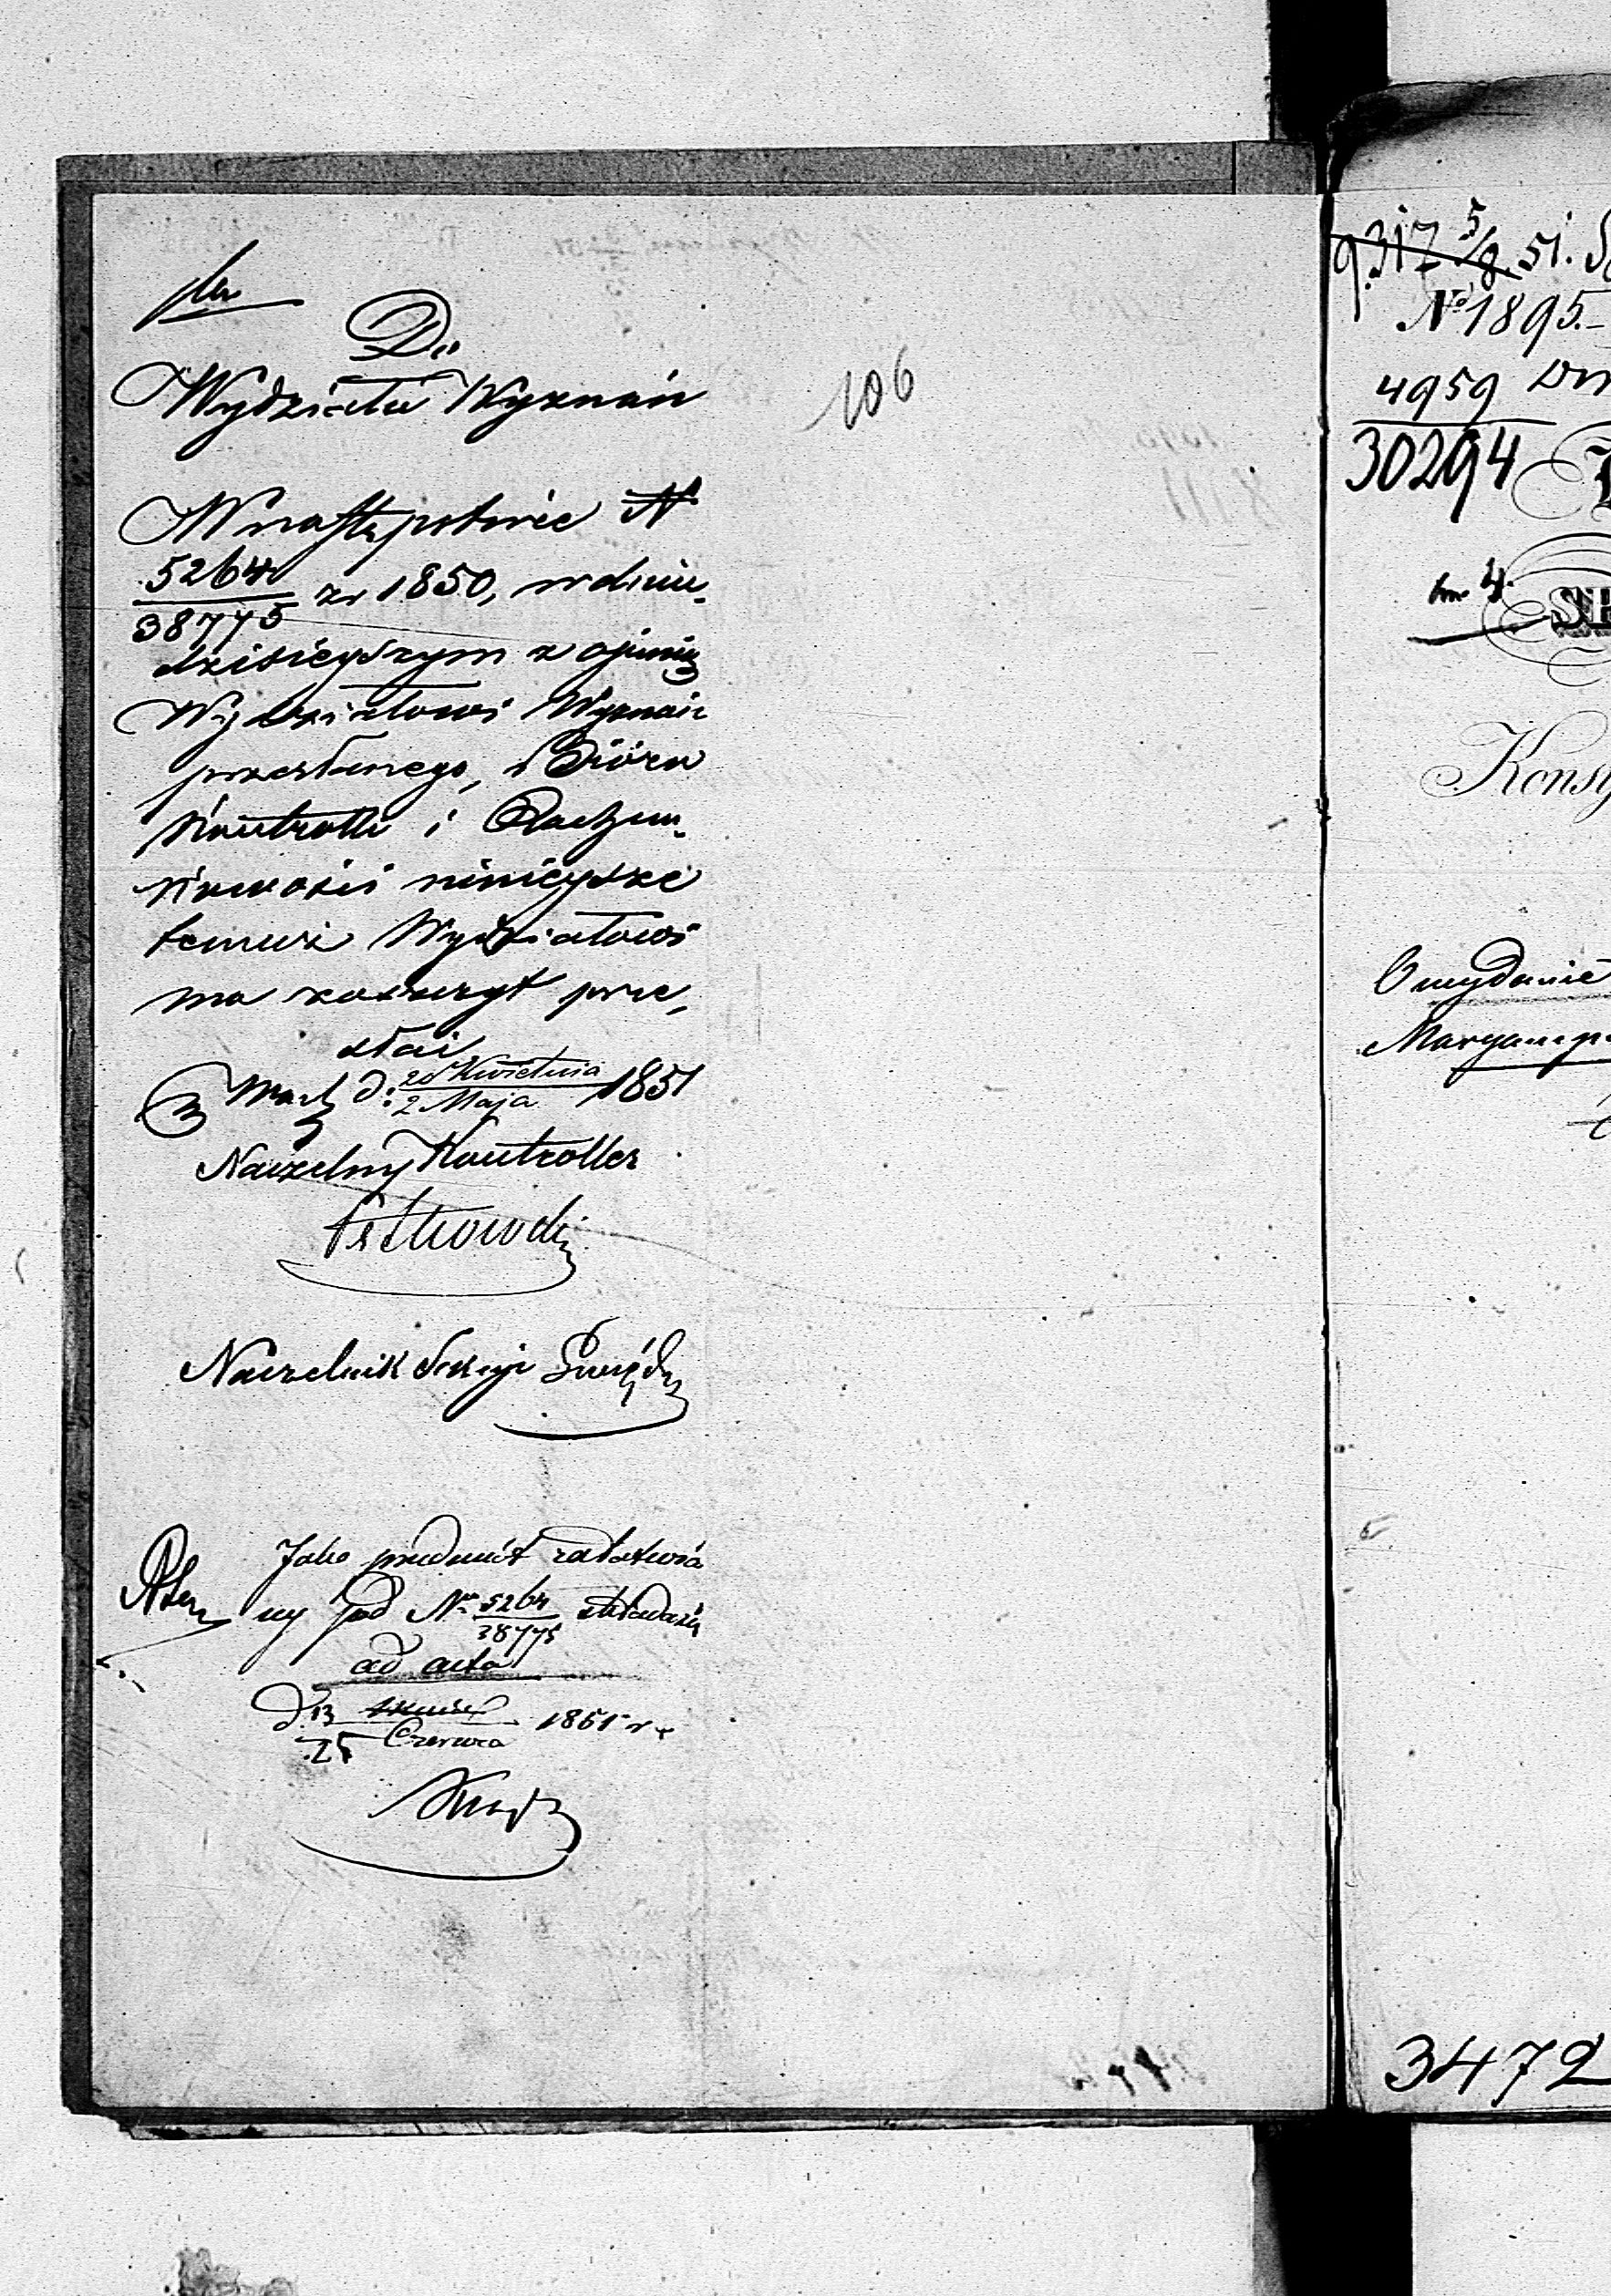 Do
Wydziału Wyznań
106
W następstwie N
5264/38775 z r 1850, w dniu
dzisieyszym z opinią
Wydziałowi Wyznań
przesłanego, Bióro
Kontrolli i Rachun-
kowości ninieysze
temuż Wydziałowi
ma zaszczyt prze-
słać
Warsz d: 20 Kwietnia/2 Maja 1851
Naczelny Kontroller
Naczelnik Sekcyi
Jako przedmiot załatwio
ny pod Nr 5264/38775 składa się
ad acta
d. 13/25 Czerwca 1851 r.
9317 5/8. 51.
No 1895.-
4959
30294
Konsy
O wydanie
Maryamp
3472